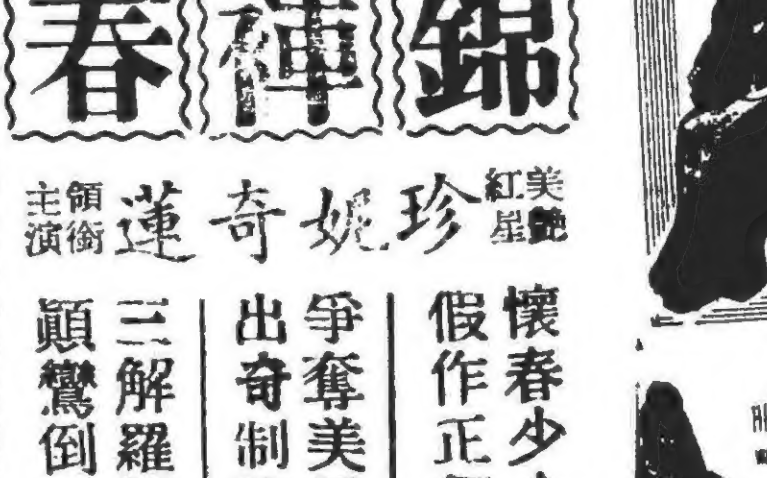 錦褌春
美艷
紅星
珍妮奇蓮
領銜
主演
懷春少
假作正
爭奪美
出奇制
三解羅
顛鸞倒